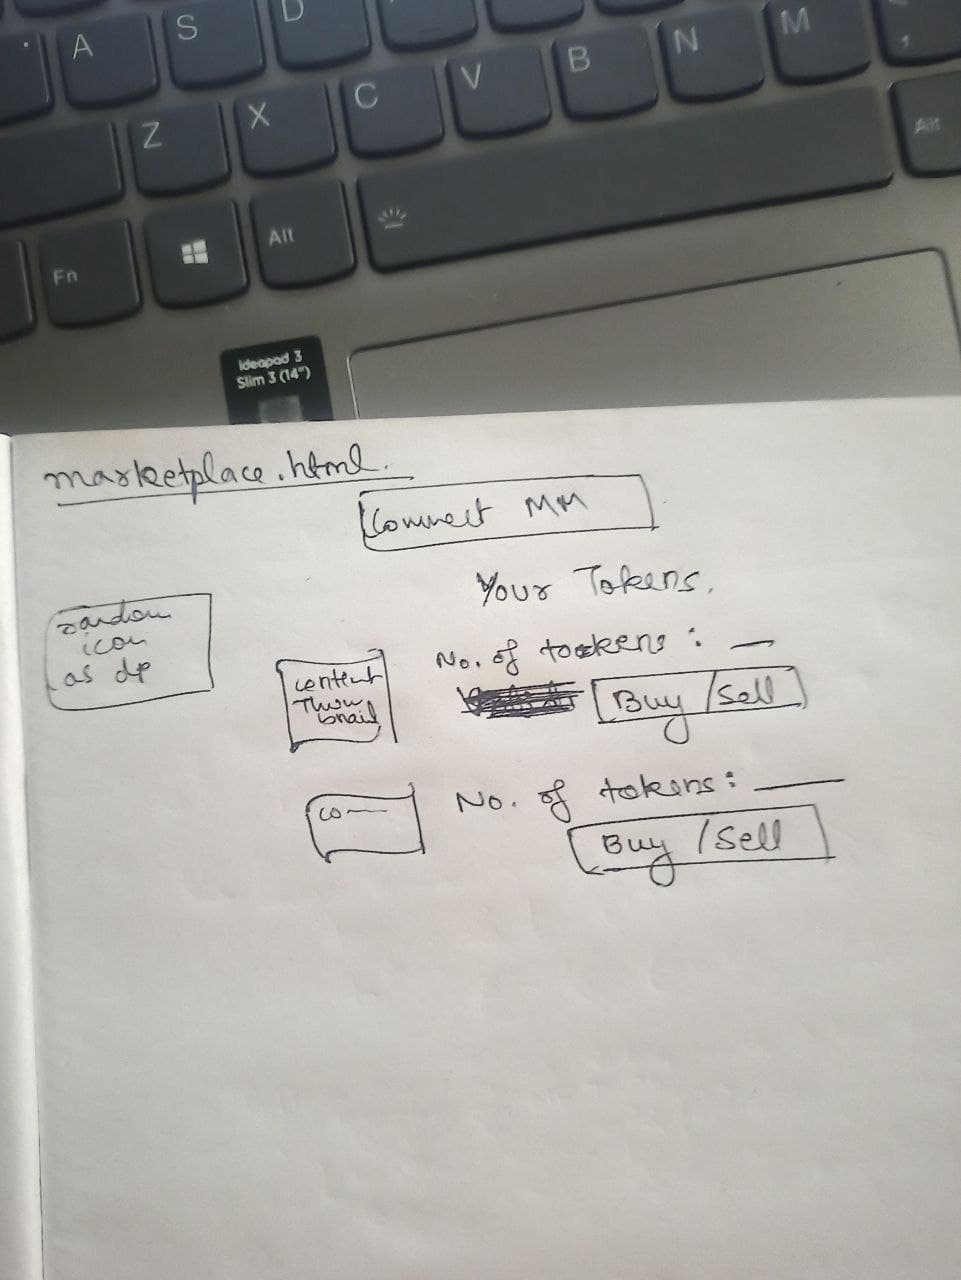 D
A
S
Z
X
C
V
B
N
M
,
Fn
Alt
Alt
ideapad 3
Slim 3 (14")
marketplace.html.
Connect MM
Your Tokens.
random
icon
as dp
content
Thum
bnail
No. of tokens :
Buy / Sell
co
No. of tokens :
Buy / Sell